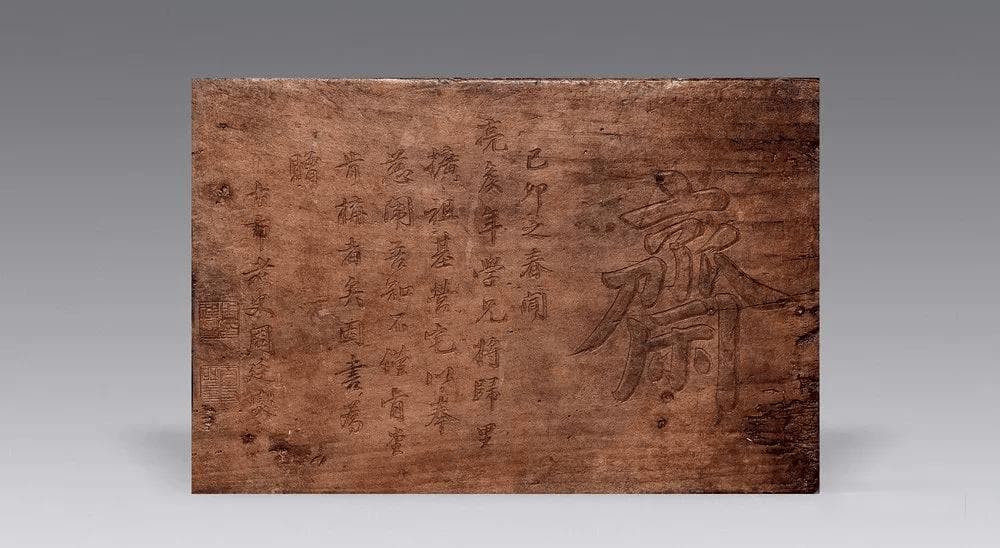 齋
己卯之春聞
亮矦年學兄将歸里
擴祖基營宅以奉
慈闈吾知不僅肯堂
肯構者矣因書為
贈
老史周廷